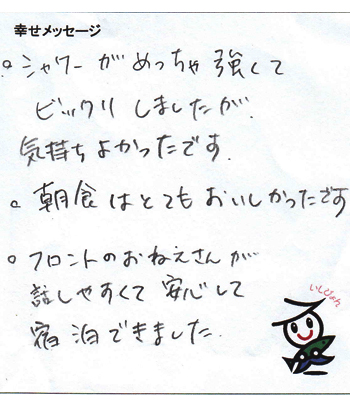 幸せメッセージ
。シャワーがめっちゃ強くて
ビックリしましたが、
気持ちよかったです。
。朝食はとてもおいしかったです
。フロントのおねえさんが
話しやすくて安心して
宿泊できました。